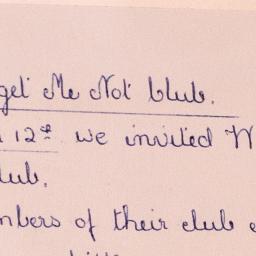 get Me Not Club.
12th we invited W
lub.
mbers of their club